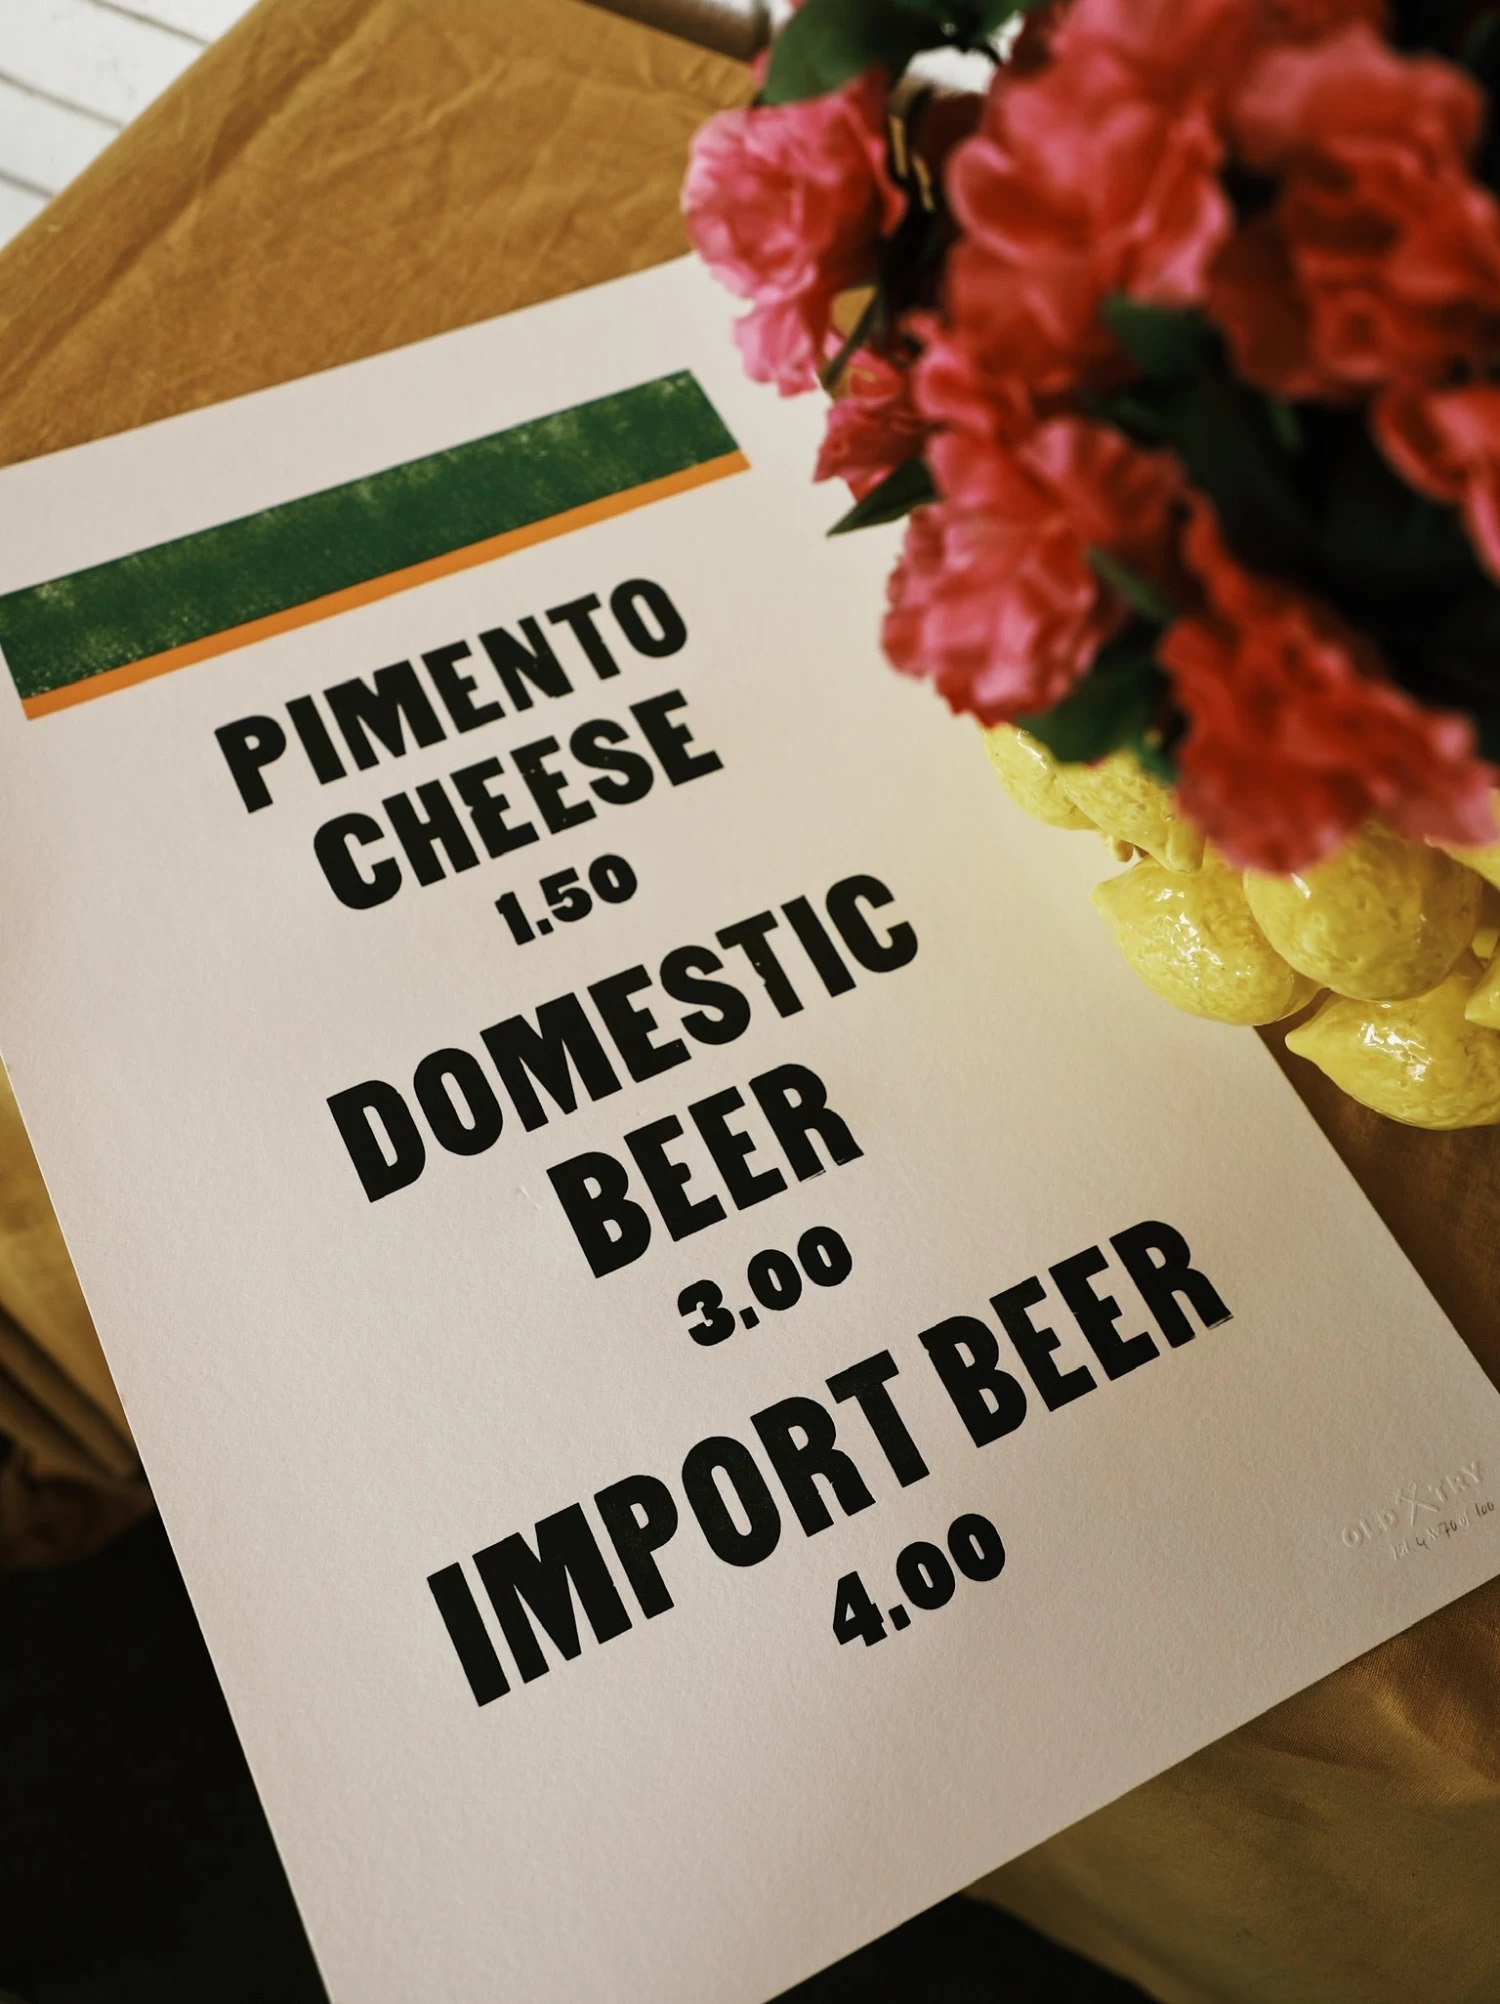 PIMENTO
CHEESE
1.50
DOMESTIC
BEER
3.00
IMPORT BEER
4.00
OLD TRY
70 of 100